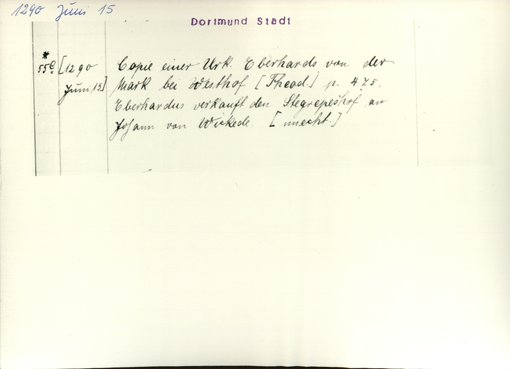 1290 Juni 15
Dortmund Stadt
*
55c [1290 Copie einer Urk. Eberhards von der
Juni 15] Mark bei Westhof [Thead.] p. 475.
Eberhardus verkauft den Stegrepeshof an
Johann von Wickede. [unecht.]